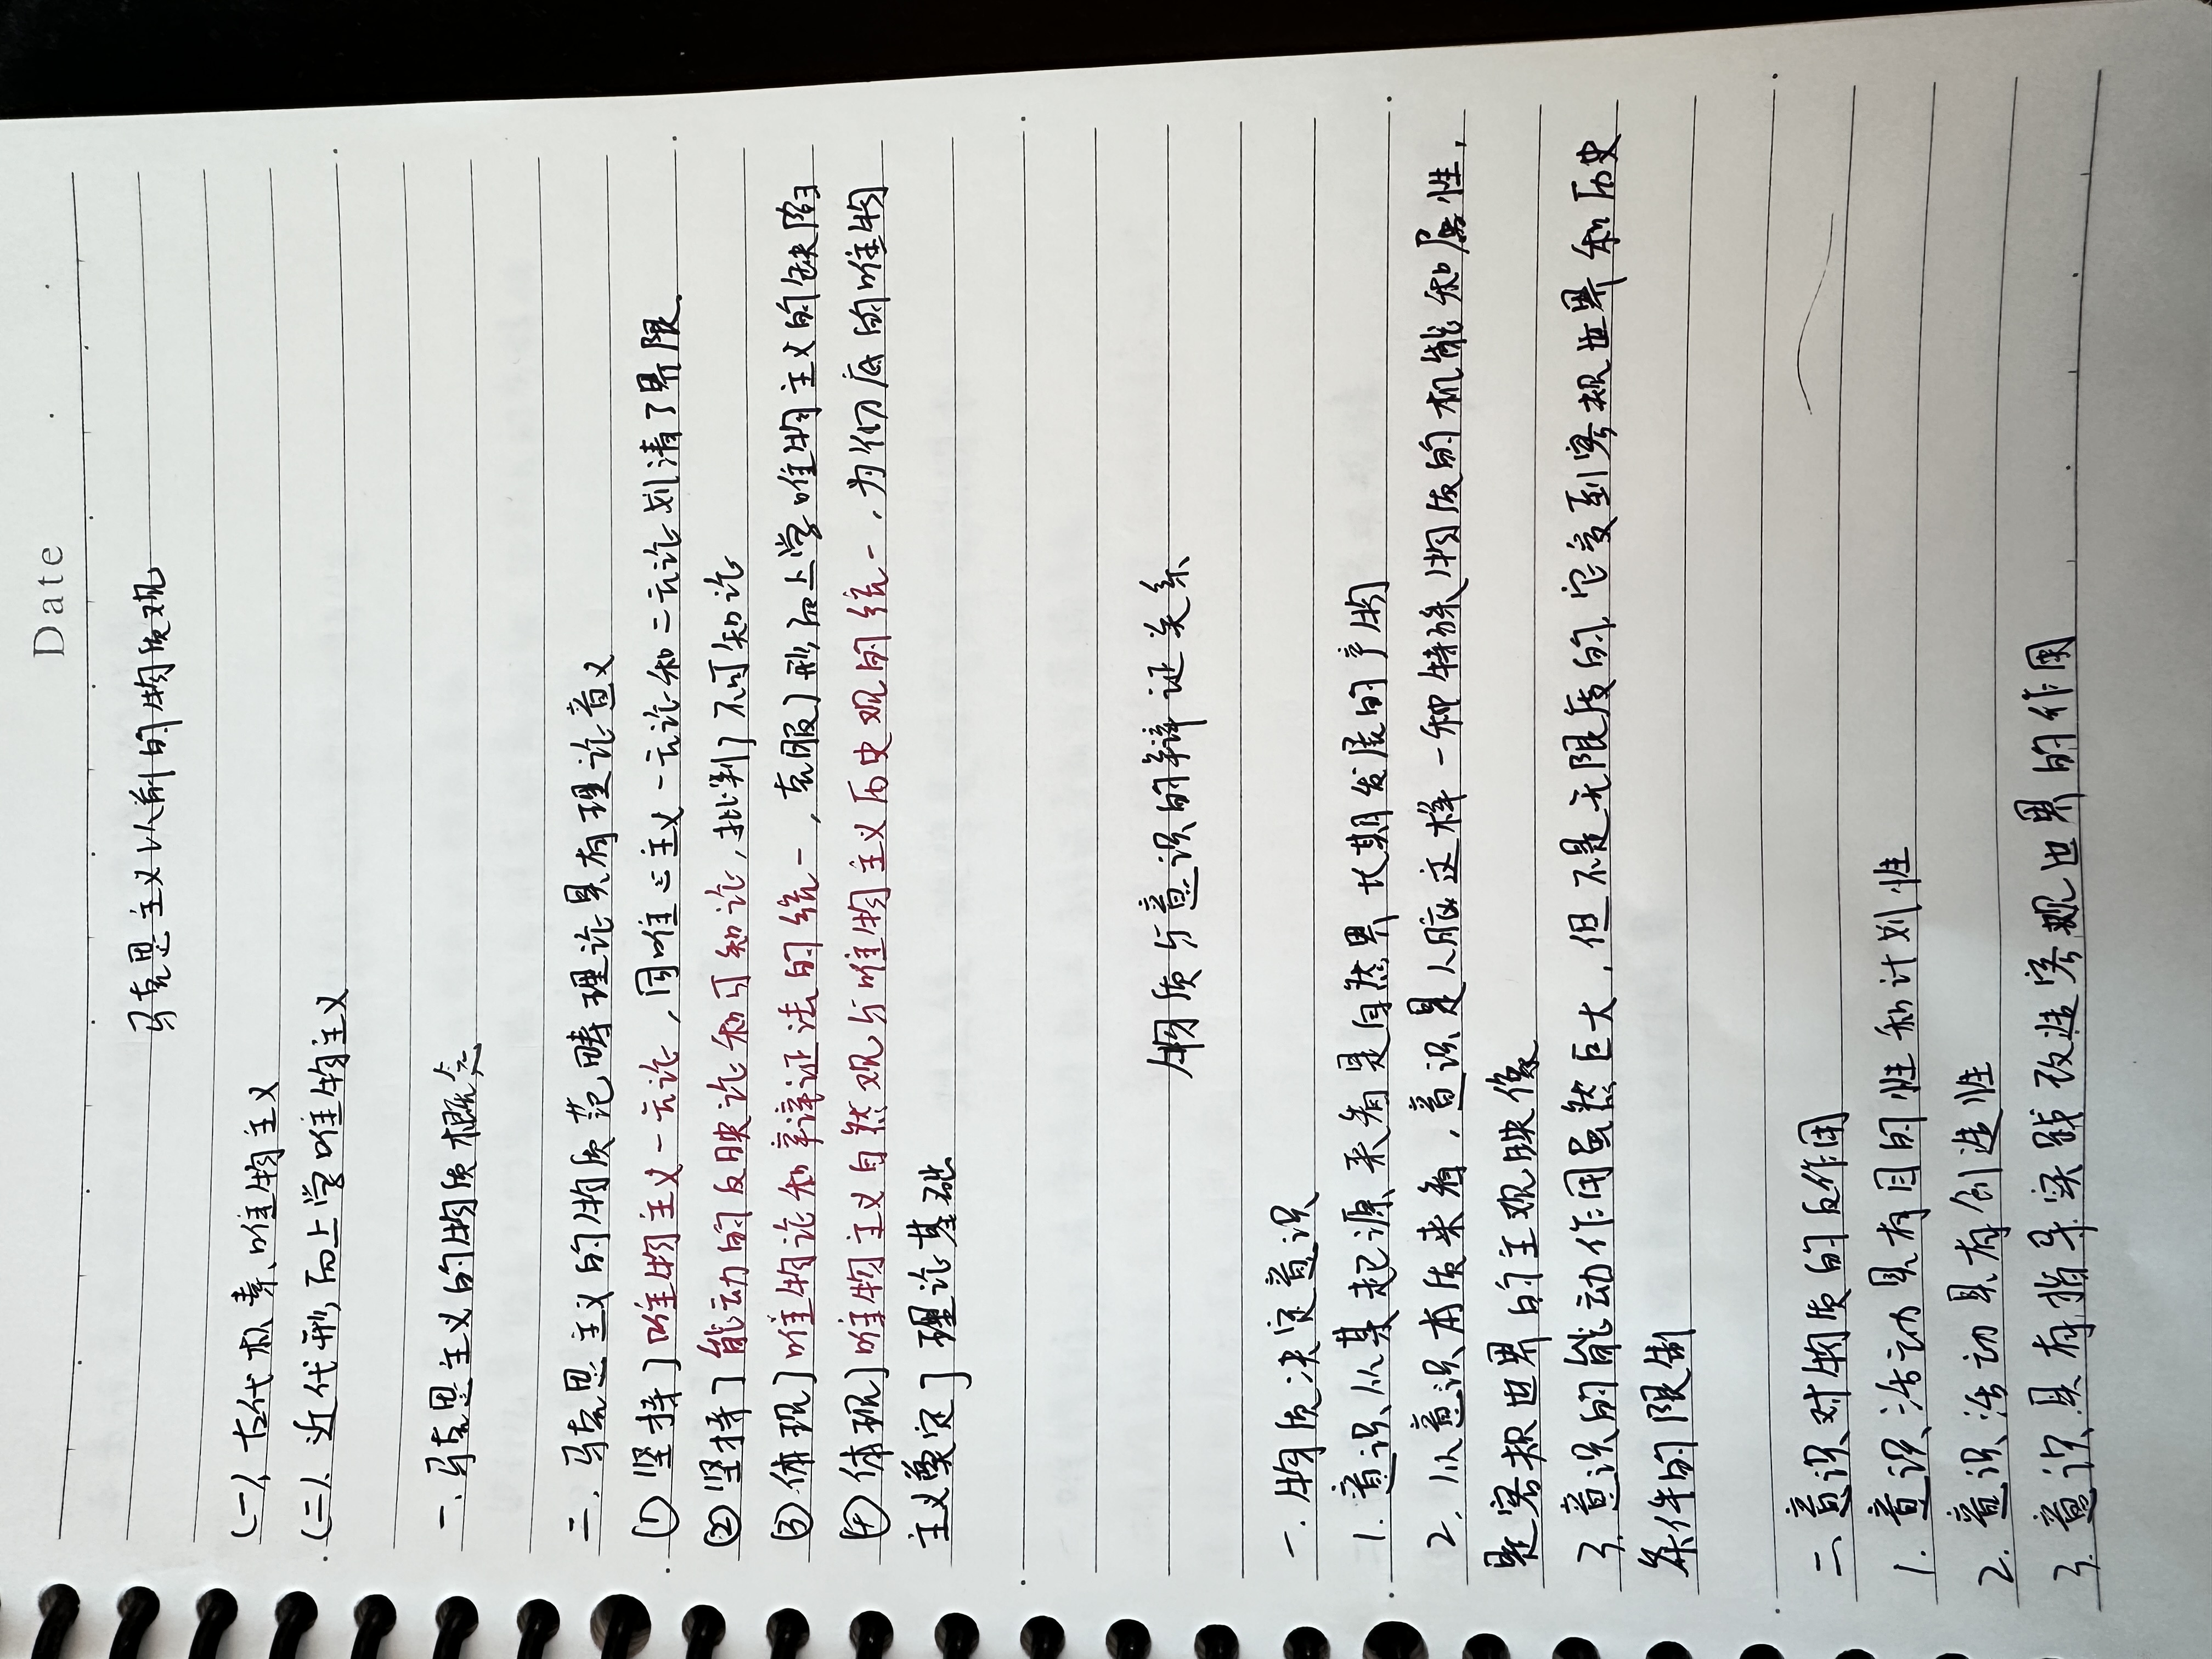 Date
马克思主义以前的物质观
(一)、古代朴素唯物主义
(二)、近代形而上学唯物主义
一.马克思主义的物质概念
二.马克思主义的物质范畴理论具有理论意义
①坚持了唯物主义一元论,同唯心主义一元论和二元论划清了界限。
②坚持了能动的反映论和可知论,批判了不可知论
③体现了唯物论和辩证法的统一,克服了形而上学唯物主义的缺陷
④体现了唯物主义自然观与唯物主义历史观的统一,为彻底的唯物
主义奠定了理论基础
物质与意识的辩证关系
一.物质决定意识
1.意识从其起源来看是自然界长期发展的产物
2.从意识本质来看,意识是人脑这样一种特殊物质的机能和属性,
是客观世界的主观映像
3.意识的能动作用虽然巨大,但不是无限度的,它受到客观世界和历史
条件的限制
二.意识对物质的反作用
1.意识活动具有目的性和计划性
2.意识活动具有创造性
3.意识具有指导实践改造客观世界的作用